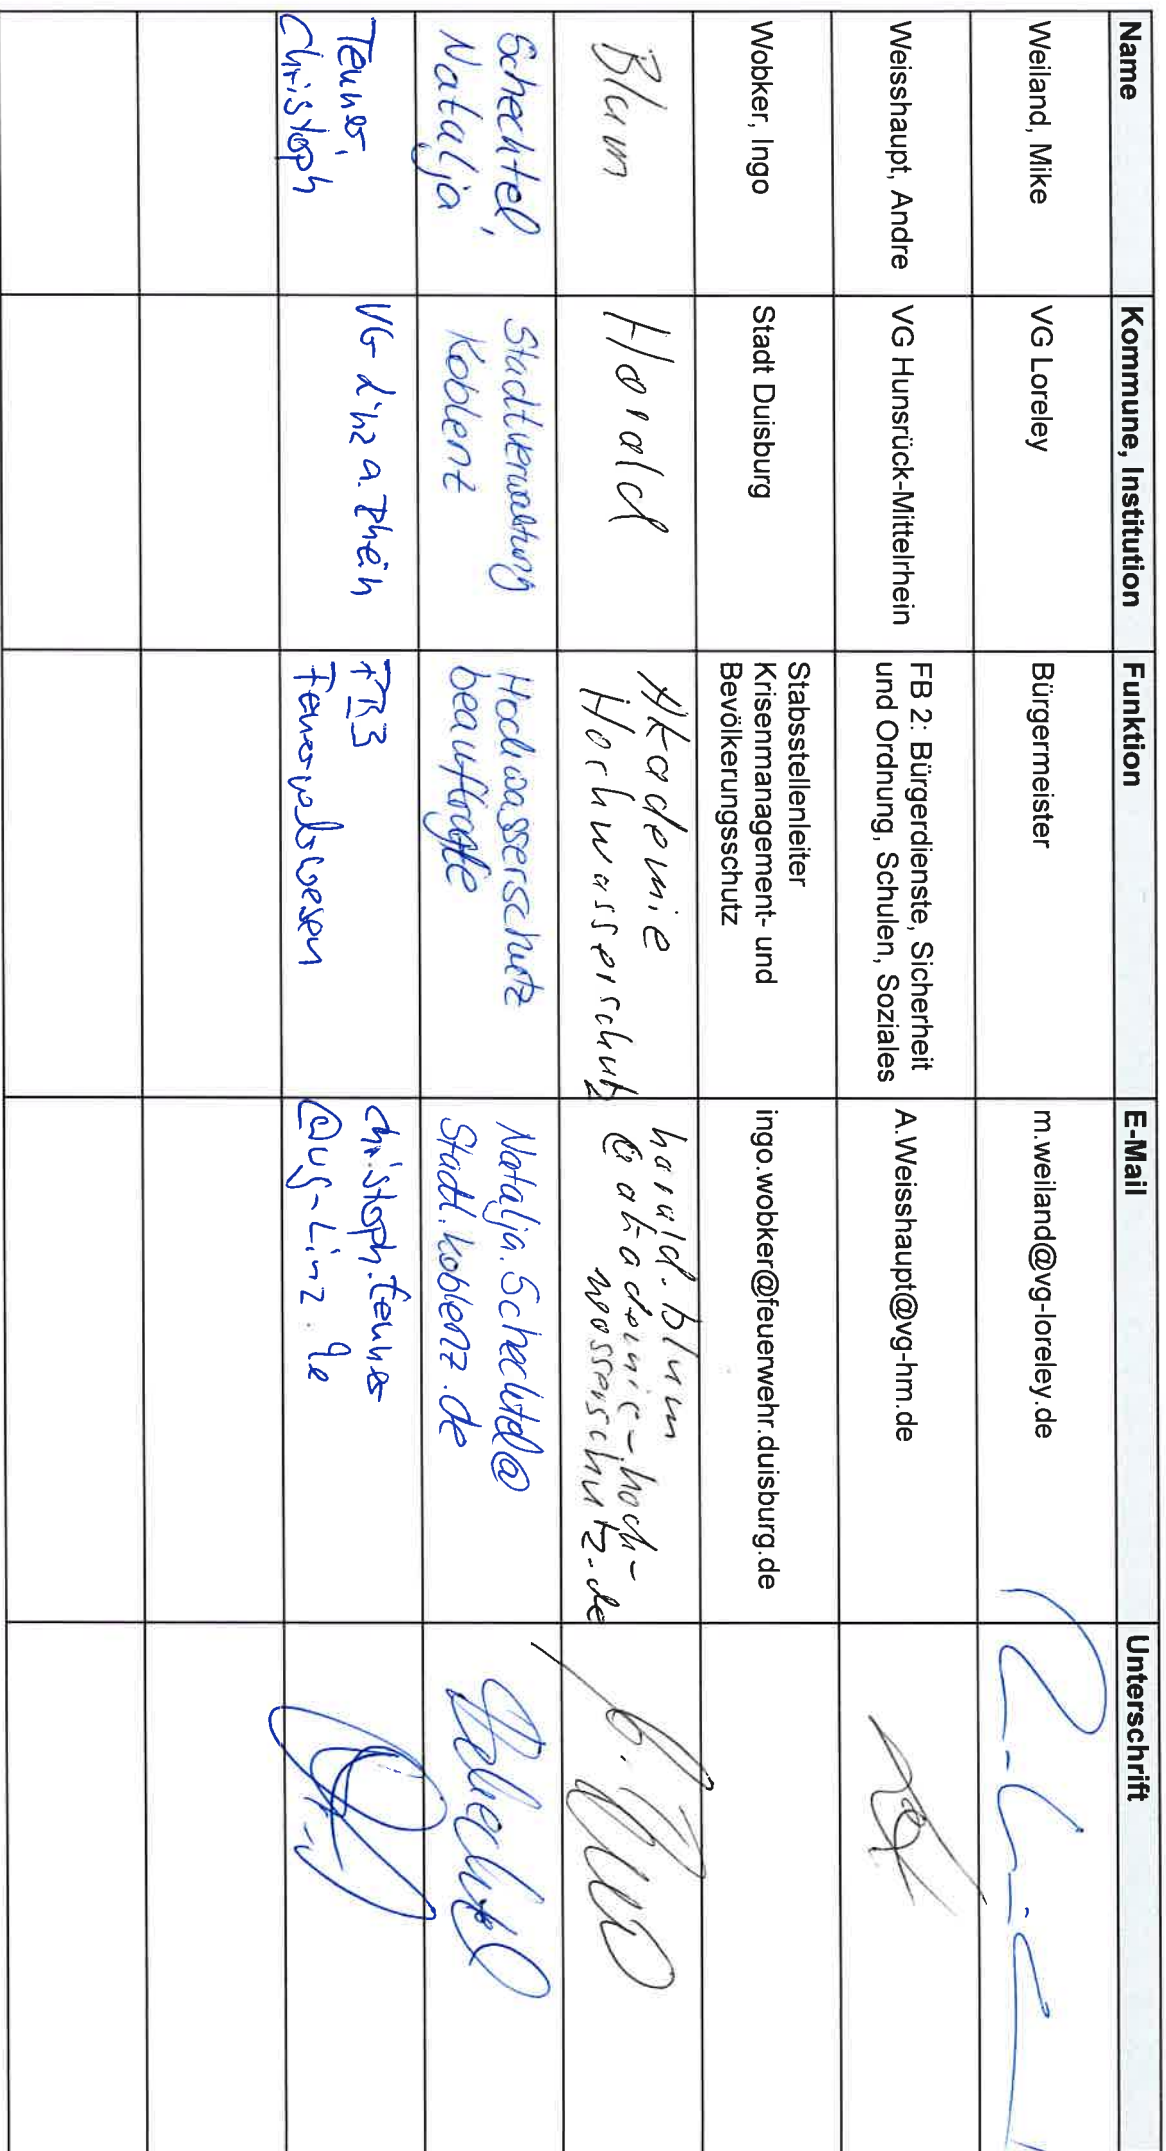 Name Kommune, Institution Funktion E-Mail Unterschrift
Weiland, Mike VG Loreley Bürgermeister m.weiland@vg-loreley.de
Weisshaupt, Andre VG Hunsrück-Mittelrhein FB 2: Bürgerdienste, Sicherheit
und Ordnung, Schulen, Soziales A.Weisshaupt@vg-hm.de
Wobker, Ingo Stadt Duisburg Stabsstellenleiter
Krisenmanagement- und
Bevölkerungsschutz ingo.wobker@feuerwehr.duisburg.de
Blum Harald Akademie
Hochwasserschutz harald.blum
@akademie-hoch-
wasserschutz.de
Schechtel,
Natalja Stadtverwaltung
Koblenz Hochwasserschutz
beauftragte Natalja.Schechtel@
Stadt.koblenz.de
Tenner,
Christoph VG Linz a. Rhein
Feuerwehrwesen christoph.tenner
@vg-Linz.de